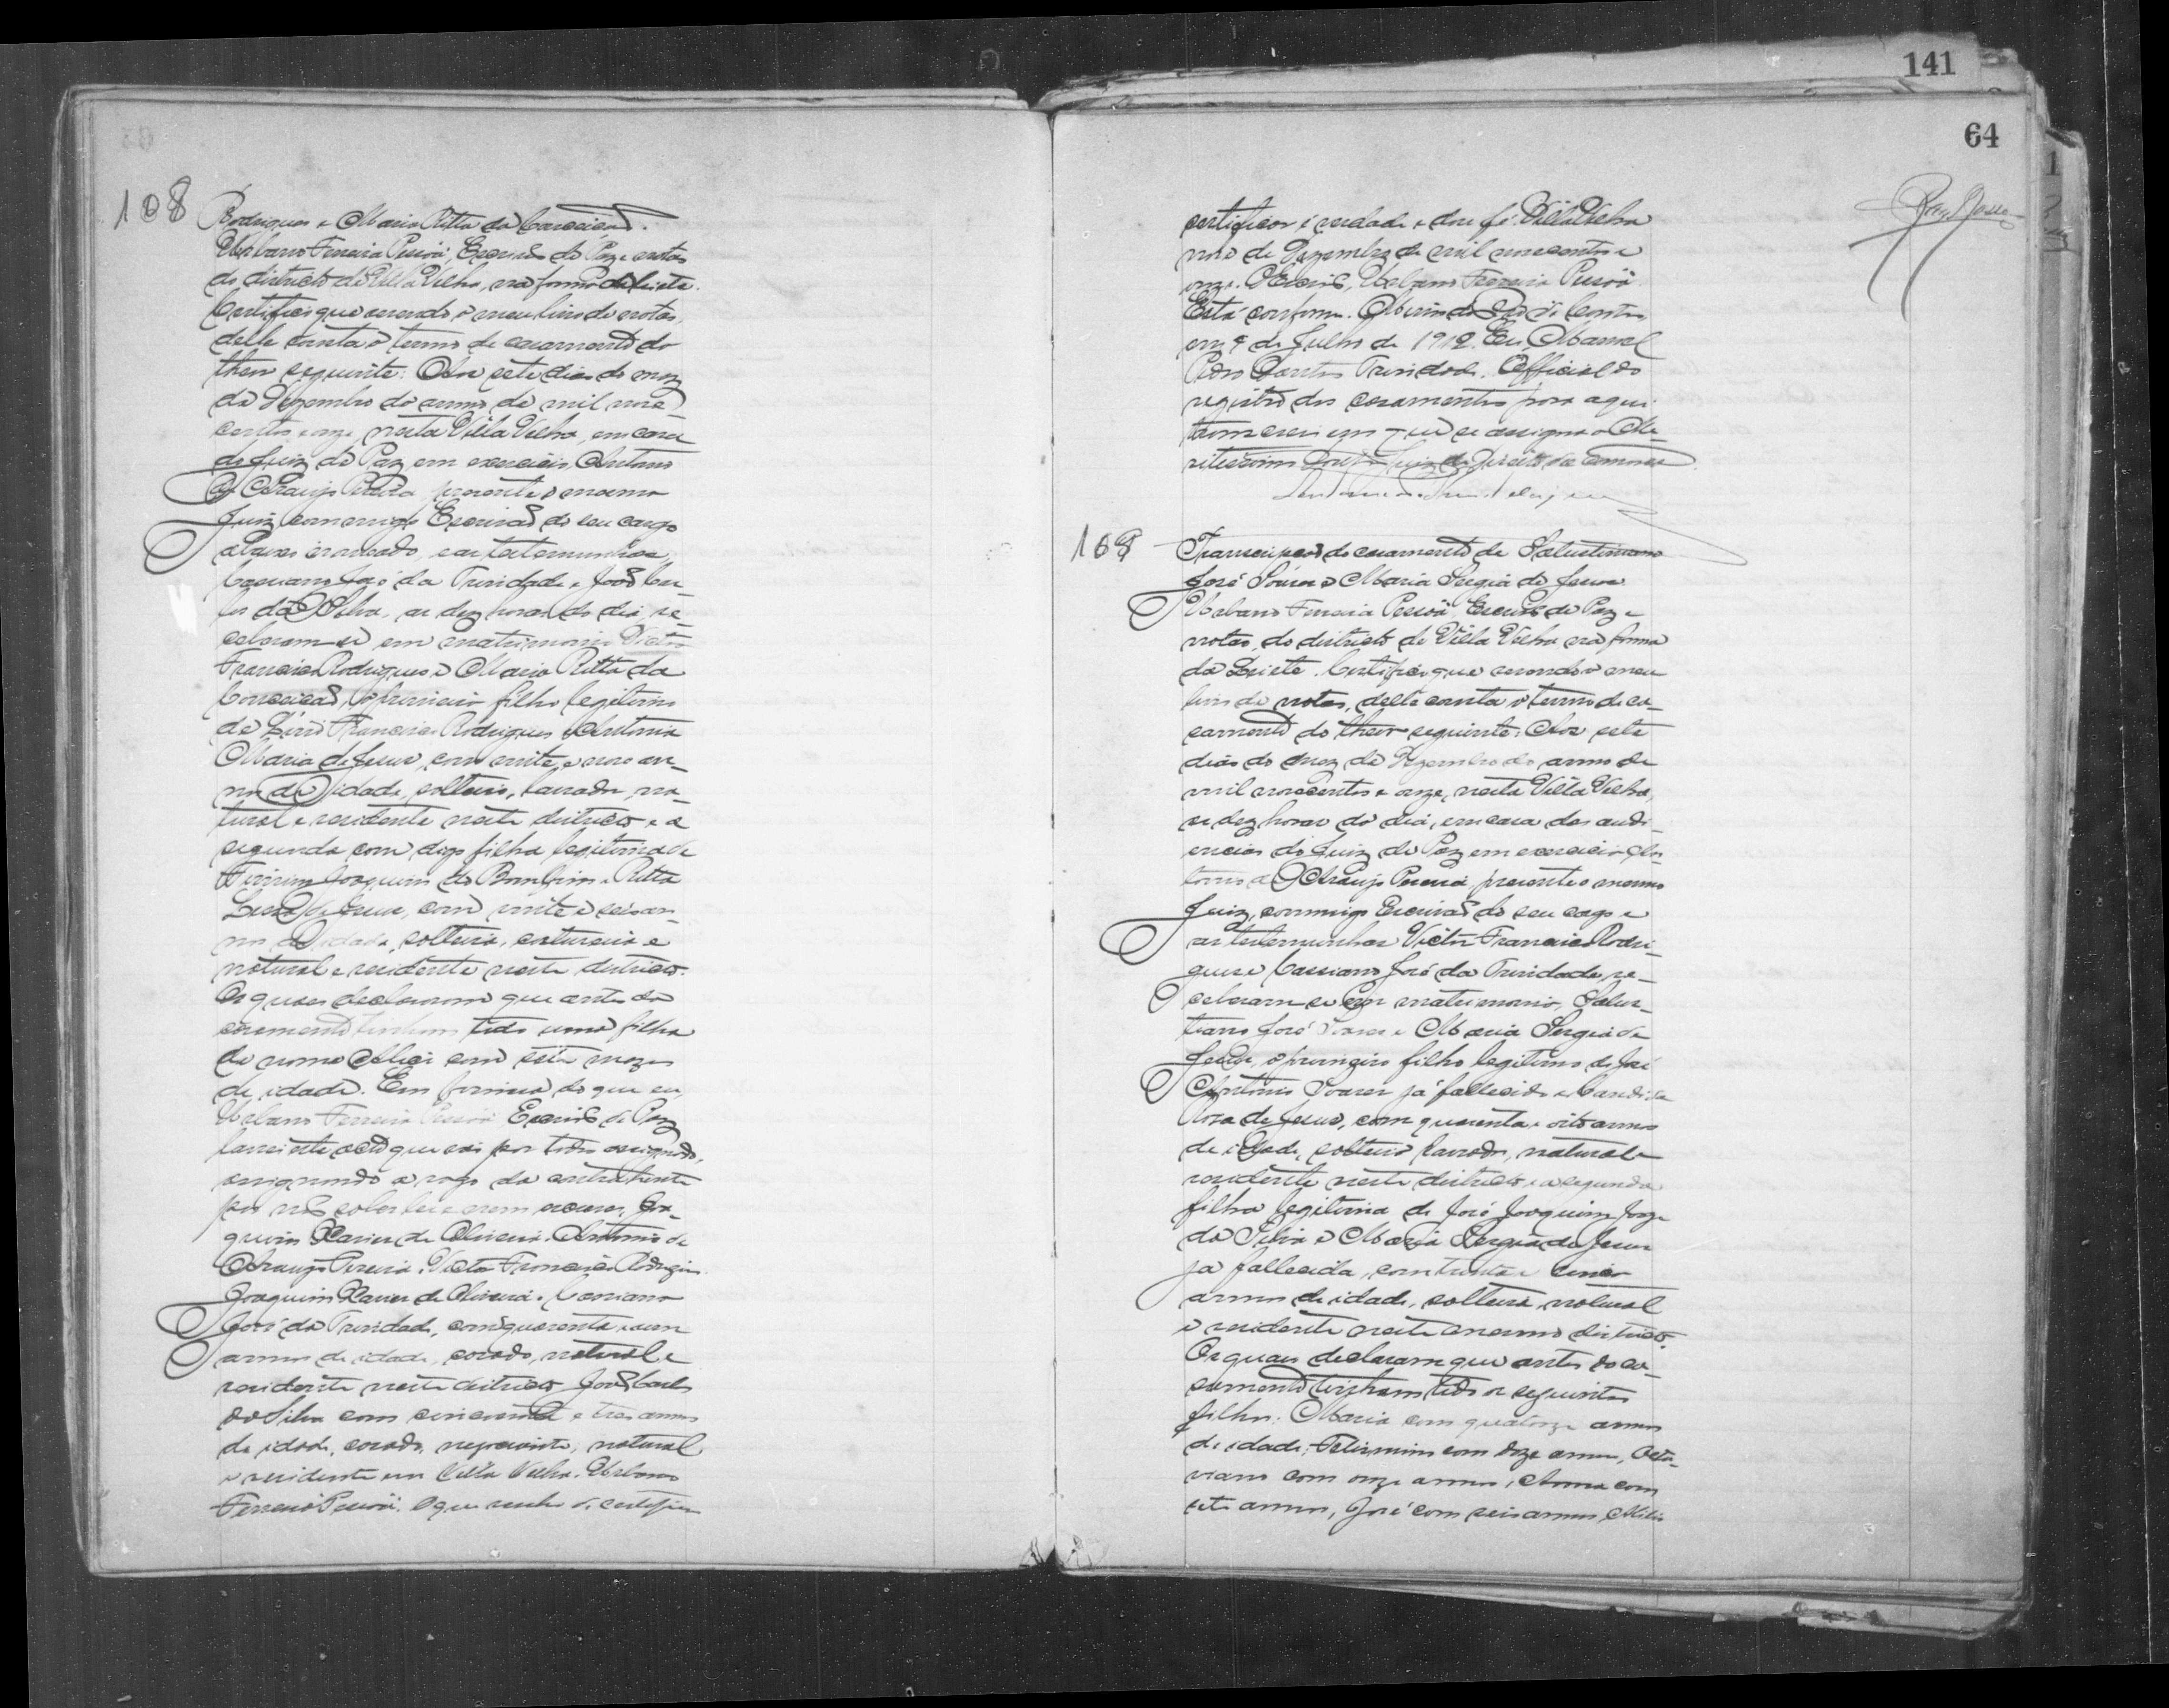 141
64
108
Rodrigues e Maria Ritta da Conceicão.
Urbano Ferreira Pessoa, Escrivão de Paz e notas
do districto de Villa Velha, na forma da Lei etc.
Certifico que revendo o meu livro de notas,
delle consta o termo de casamento do
theor seguinte: Aos sete dias do mez
de Dezembro do anno de mil nove
centos e onze, nesta Villa Velha, em casa
do Juiz de Paz em exercicio Antonio
de Araujo Pereira, presente o mesmo
Juiz commigo Escrivão do seu cargo
abaixo nomeado, e as testemunhas
Cassiano José da Trindade e João Car-
los da Silva, as dez horas do dia re-
ceberam-se em matrimonio Victor
Francisco Rodrigues e Maria Ritta da
Conceicão, o primeiro filho legitimo
de Francisco Rodrigues e Antonia
Maria de Jesus, com vinte e nove an-
nos de idade, solteiro, lavrador, na-
tural e residente neste districto e a
segunda com digo filha legitima de
Joaquim do Bomfim e Ritta
de Jesus, com vinte e seis an-
nos de idade, solteira, costureira e
natural e residente neste districto.
Os quaes declararam que antes do
casamento tinham tido uma filha
de nome com sete mezes
de idade. Em firmeza do que eu,
Urbano Ferreira Pessoa Escrivão de Paz
lavrei este acto que vai por todos assignado,
assignando a rogo da contrahente
por não saber ler e nem escrever, Joa-
quim Xavier de Oliveira. Antonio de
Araujo Pereira. Victor Francisco Rodrigues.
Joaquim Xavier de Oliveira. Cassiano
José da Trindade, com quarenta e um
annos de idade, casado, natural e
residente neste districto. João Carlos
da Silva com cincoenta e tres annos
de idade, casado, negociante, natural
e residente em Villa Velha. Urbano
Ferreira Pessoa. O que venho de certificar
certificar é verdade e dou fé. Villa Velha
nove de Dezembro de mil novecentos e
onze. O Escrivão, Urbano Ferreira Pessoa.
Está conforme. Minas do Rio de Contas
em 4 de Julho de 1912. Eu, Manoel
Pedro Dantas Trindade. Official do
registro dos casamentos para aqui
transcrevi em que se assigna o Me-
ritissimo Doutor Juiz de Direito da Comarca
109
Transcripcão do casamento de Salustiano
José Soares e Maria Sergia de Jesus
Urbano Ferreira Pessoa, Escrivão de Paz e
notas, do districto de Villa Velha na forma
da Lei etc. Certifico que revendo o meu
livro de notas, delle consta o termo de ca-
samento do theor seguinte: Aos sete
dias do mez de Dezembro do anno de
mil novecentos e onze, nesta Villa Velha,
as dez horas do dia, em casa das audi-
encias do Juiz de Paz em exercicio An-
tonio de Araujo Pereira, presente o mesmo
Juiz, commigo Escrivão do seu cargo e
as testemunhas Victor Francisco Rodri-
gues e Cassiano José da Trindade, re-
ceberam-se em matrimonio, Salus-
tiano José Soares e Maria Sergia de
Jesus, o primeiro filho legitimo de José
Antonio Soares já fallecido e Candida
Rosa de Jesus, com quarenta e oito annos
de idade, solteiro lavrador, natural e
residente neste districto, e a segunda
filha legitima de José Joaquim Jorge
da Silva e Maria Sergia de Jesus
já fallecida, com trinta e cinco
annos de idade, solteira, natural
e residente neste mesmo districto.
Os quaes declararam que antes do ca-
samento tinham tido os seguintes
filhos: Maria com quatorze annos
de idade, com doze annos, Octa-
viano com onze annos, Anna com
sete annos, José com seis annos,